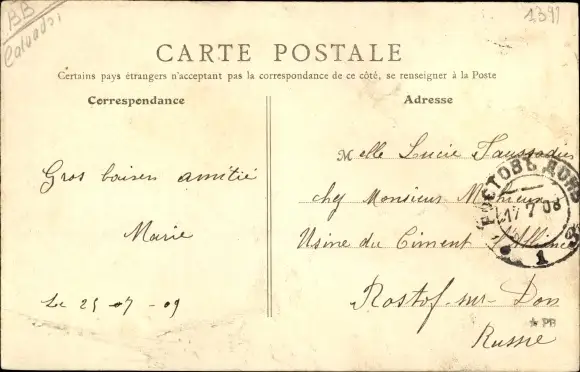 BB
Calvados
1391
CARTE POSTALE
Certains pays étrangers n'acceptant pas la correspondance de ce côté, se renseigner à la Poste
Correspondance
Gros baisers amitié
Marie
Le 25 -7 -09
Adresse
Melle Lucie
chez Monsieur
Usine du Ciment
Rostof-sur-Don
Russie
РОСТОВЪ ДОНЪ
17 7 08
1
* PB